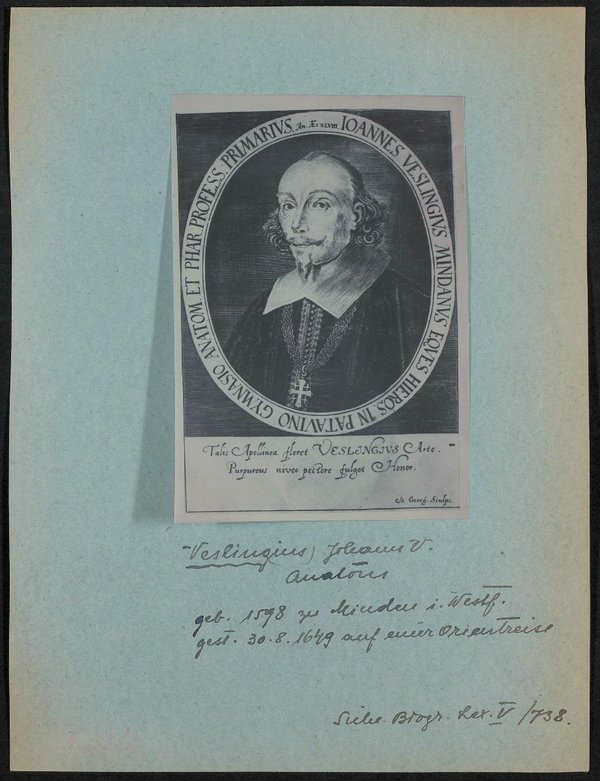 IOANNES VESLINGIVS MINDANVS EQVES HIEROS. IN PATAVINO GYMNASIO ANATOM. ET PHAR. PROFESS. PRIMARIVS. An. Æt XLVIII.
Talis Apollinea floret VESLINGIVS Arte.
Purpureus niveo pectore fulget Honor.
Io. Georg. Sculps.
Veslingius, Johann V.
Anatom
geb. 1598 zu Minden i. Westf.
gest. 30.8.1649 auf einer Orientreise
Siehe Biogr. Lex. V /738.